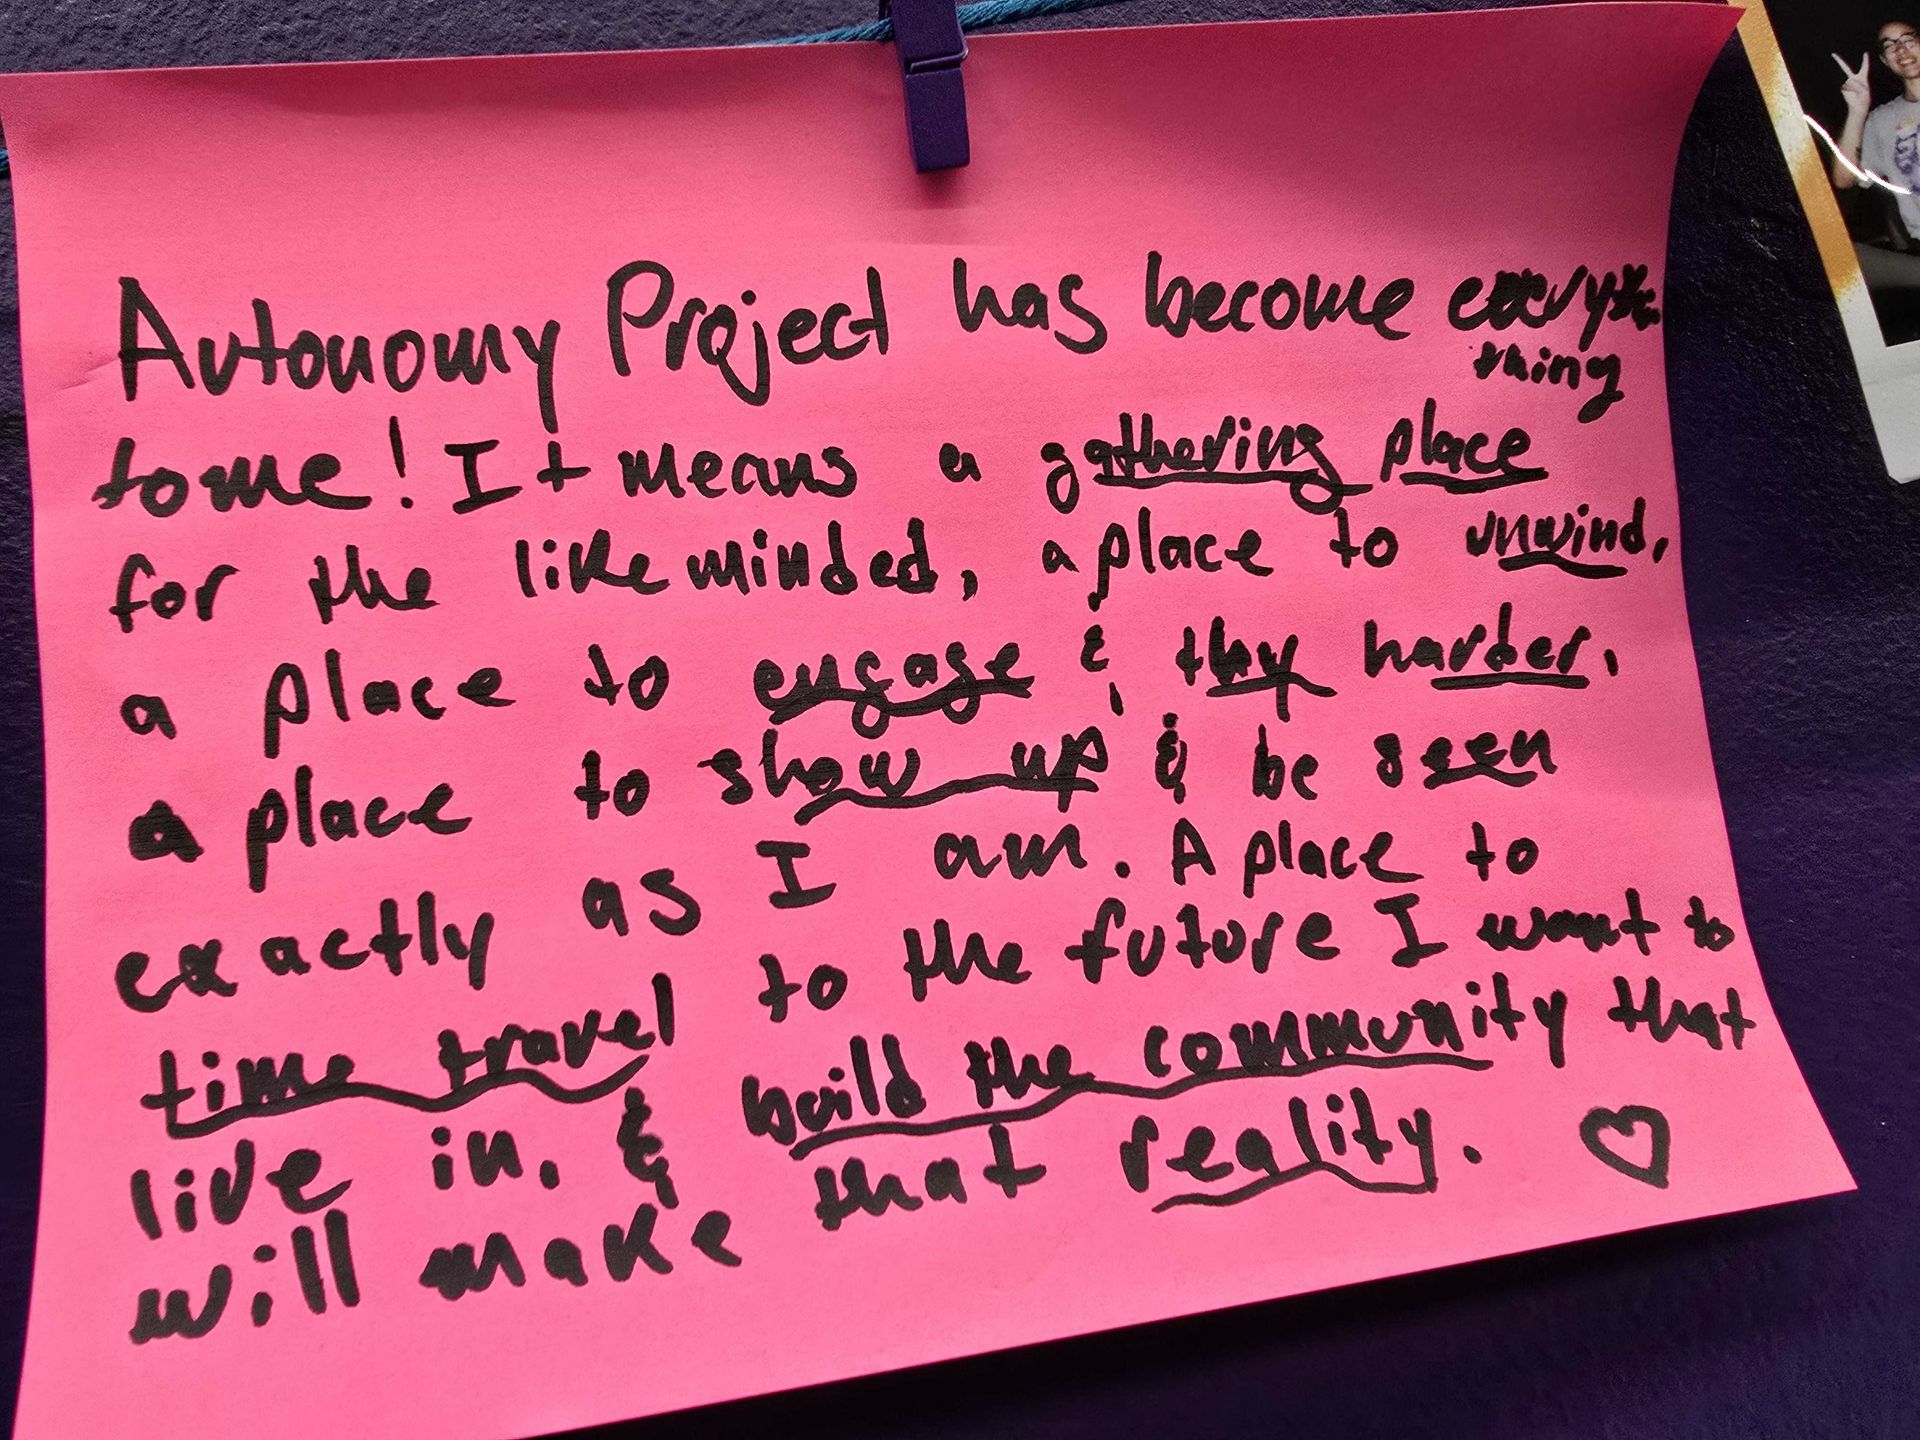 Autonomy Project has become everything
to me! It means a gathering place
for the like minded, a place to unwind,
a place to engage & thy harder,
a place to show up & be seen
exactly as I am. A place to
time travel to the future I want to
live in, & build the community that
will make that reality. ♡